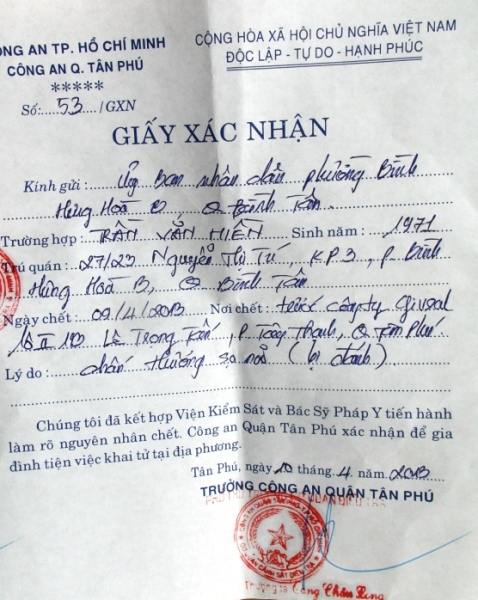 ÔNG AN TP. HỒ CHÍ MINH
CÔNG AN Q. TÂN PHÚ
*****
Số: 53 /GXN
CỘNG HÒA XÃ HỘI CHỦ NGHĨA VIỆT NAM
ĐỘC LẬP - TỰ DO - HẠNH PHÚC
GIẤY XÁC NHẬN
Kính gửi: Ủy ban nhân dân phường Bình
Hưng Hoà B, Q Bình Tân
Trường hợp: TRẦN VĂN HIỀN Sinh năm: 1971
Trú quán: 27/23 Nguyễn Thị Tú, KP3, P. Bình
Hưng Hoà B, Q Bình Tân
Ngày chết: 09/4/2013 Nơi chết: trước công ty Givral
Lê Trọng Tấn, P. Tây Thạnh, Q Tân Phú
Lý do: chấn thương sọ não (bị đánh)
Chúng tôi đã kết hợp Viện Kiểm Sát và Bác Sỹ Pháp Y tiến hành
làm rõ nguyên nhân chết. Công an Quận Tân Phú xác nhận để gia
đình tiện việc khai tử tại địa phương.
Tân Phú, ngày 10 tháng 4 năm 2013
TRƯỞNG CÔNG AN QUẬN TÂN PHÚ